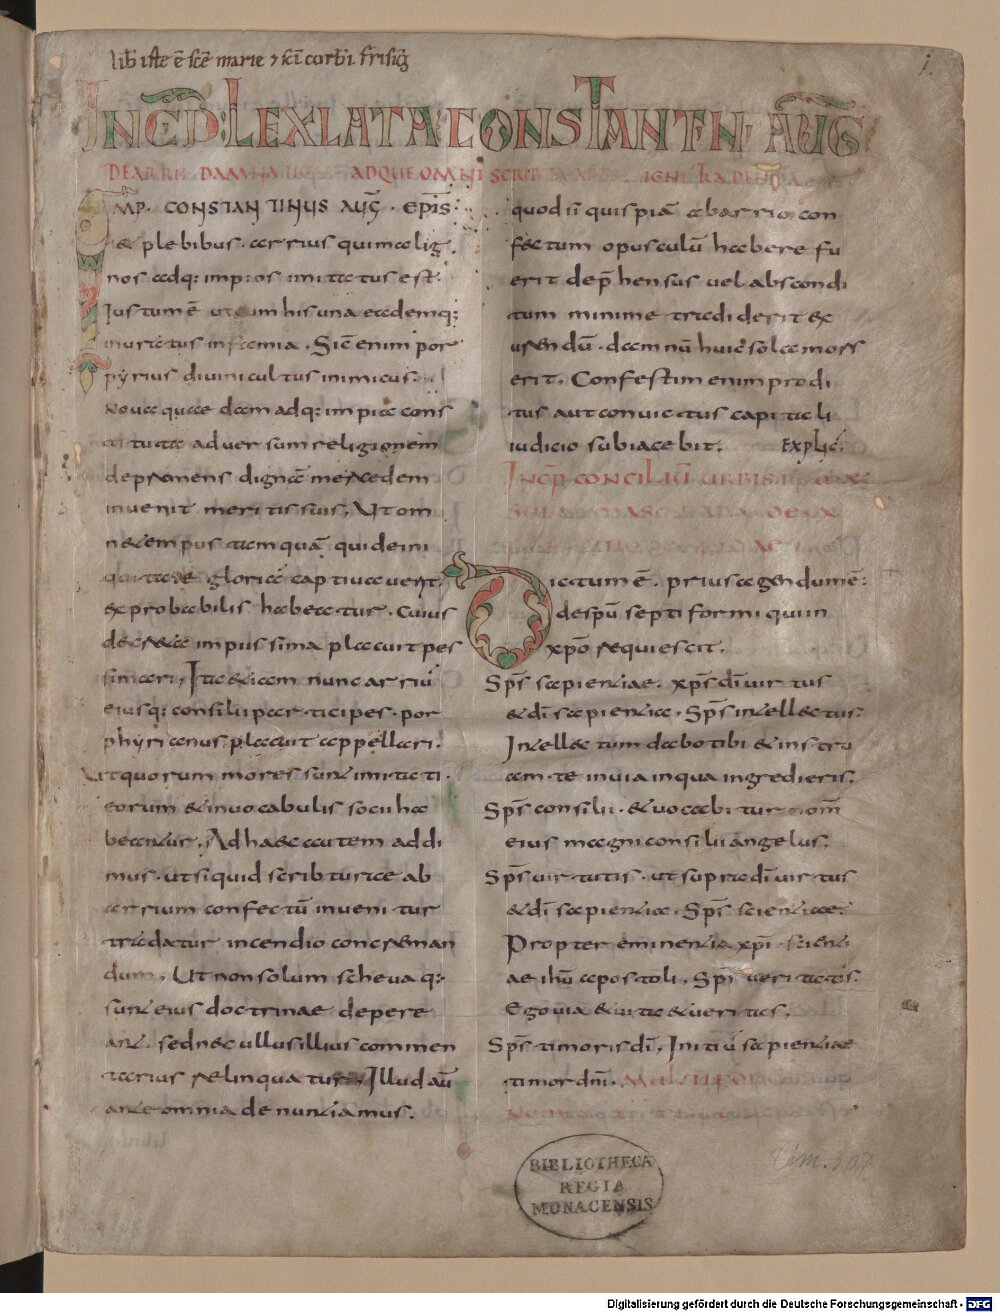 lib iste ē scē marie ⁊ sc̄i corbi frisīg
1.
INCP̄D: LEX LATA CONSTANTINI AUG̅
DE ARRII DAMNATIONE ADQUE OMNI SCRIPTA IGNI TRADENDA
IMP. CONSTANTINUS AUḠ. EP̄IS.
& plebibus. arrius qui malig
nos adq: impios imitatus est.
Iustum ē ut eum his una eademq;
mur&tus infamia. Sic enim por
pyrius divini cultus inimicus.
Novae quae dam adq: impia cons
tituta adversum religionem
depromens dignā mercedem
invenit meritis suis. Ut om
ne tempus tamquā qui deini
quitate gloriae captivaverit.
exprobabilis habeatur. Cuius
decreta impiissima placuit pes
simari. Ita & iam nunc arriū
eiusq; consilii participes. por
phyrianus placuit appellari.
Ut quorum mores sunt imitati.
eorum & in vocabulis socii ha
beantur. Ad haec autem addi
mus. ut siquid scribturae ab
arrium confectū invenitur
tradatur incendio concreman
dum. Ut non solum schevaq:
sunt eius doctrinae depere
ant. sed nec ullus illius commen
tarius relinquatur. Illud aū
ante omnia denuntiamus.
quod si quispiā ab arrio con
fectum opusculū habere fu
erit dep̄hensus vel abscondi
tum minime tradiderit ex
urendū. dam nū huic sola mors
erit. Confestim enim prodi
tus aut convictus capitali
iudicio subiacebit. Explic̄.
INCP̄ CONCILIŪ URBIS ROMAE
SUB DAMASO PAPA DE EX
Dictum ē. prius agendum ē:
de sp̄u septiformi qui in
xp̄o requiescit.
Sp̄s sapientiae. xp̄s dī virtus
& dī sapientia. Sp̄s intellectus.
Intellectum dabo tibi & instru
am te in via in qua ingredieris.
Sp̄s consilii. & vocabitur nom̄
eius magni consilii angelus.
Sp̄s virtutis. ut supra dī virtus
& dī sapientia. Sp̄s scientiae.
Propter eminentia xp̄i scienti
ae ih̄u apostoli. Sp̄s veritatis.
Ego via & vita & veritas.
Sp̄s timoris dī. Initiū sapientiae
timor dn̄i. Multiformis
BIBLIOTHECA
REGIA
MONACENSIS
Digitalisierung gefördert durch die Deutsche Forschungsgemeinschaft - DFG